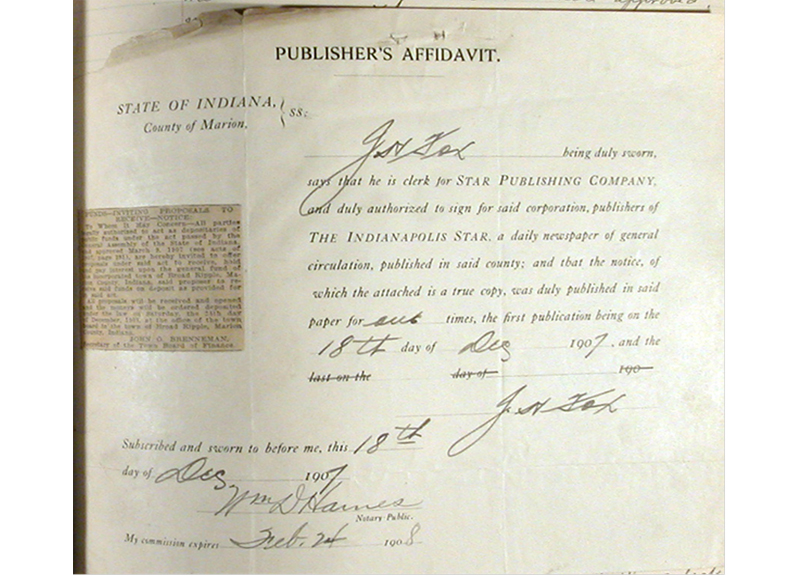 approved,
PUBLISHER'S AFFIDAVIT.
STATE OF INDIANA, } ss:
County of Marion,
J. H Fox being duly sworn,
says that he is clerk for STAR PUBLISHING COMPANY,
and duly authorized to sign for said corporation, publishers of
THE INDIANAPOLIS STAR, a daily newspaper of general
circulation, published in said county; and that the notice, of
which the attached is a true copy, was duly published in said
paper for one times, the first publication being on the
18th day of Dec 1907, and the
last on the day of 190
J. H Fox
FUNDS—INVITING PROPOSALS TO
RECEIVE—NOTICE:
To Whom It May Concern—All parties
legally authorized to act as depositaries of
public funds under the act passed by the
General Assembly of the State of Indiana,
and approved March 9, 1907 (see acts of
page 391), are hereby invited to offer
proposals under said act to receive, hold
and pay interest upon the general fund of
the incorporated town of Broad Ripple, Ma-
rion County, Indiana, said proposer to re-
ceive said funds on deposit as provided for
in said act.
All proposals will be received and opened
and the moneys will be ordered deposited
under the law on Saturday, the
of December, at the office of the town
board in the town of Broad Ripple, Marion
County, Indiana.
JOHN O. BRENNEMAN,
Secretary of the Town Board of Finance.
Subscribed and sworn to before me, this 18th
day of Dec 1907
Wm D Haines
Notary Public.
My commission expires Feb. 24 1908